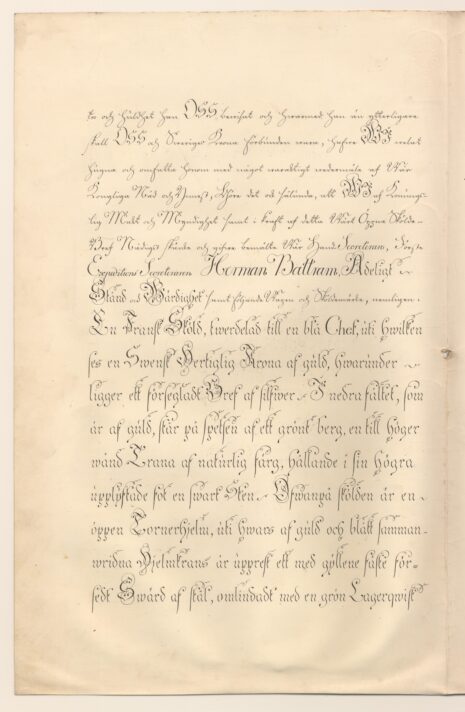 tro och huldhet han OSS bewisat och hwarmed han än ytterligare
skall OSS och Sweriges Krona förbunden wara, hafwe WI welat
hugna och omfatta honom med något wärdigt wedermäle af Wår
Kongliga Nåd och Ynnest, Giöre det ock således, att WI af Konung-
lig Makt och Myndighet samt i kraft af detta Wårt Öppna Skölde-
Bref Nådigst skänke och gifwe bemälte Wår Hand Secreteraren, Förste
Expeditions Secreteraren Herman Baltham, Adeligt
Stånd och Wärdighet samt följande Wapn och Sköldemärke, nemligen:
En Fransk Sköld, twerdelad till en blå Chef, uti hwilken
ses en Swensk Hertiglig Krona af guld, hwarunder
ligger ett förseglad Bref af silfwer. I nedra fältet, som
är af guld, står på spetsen af ett grönt berg, en till höger
wänd Trana af naturlig färg, hållande i sin högra
upplyftade fot en swart Sten. Ofwanpå skölden är en
öppen Tornerhjelm, uti hwars af guld och blått samman-
wridna Hjelmkrans är upprest ett med gyllene fäste för-
sedt Swärd af stål, omlindadt med en grön Lagerqwist